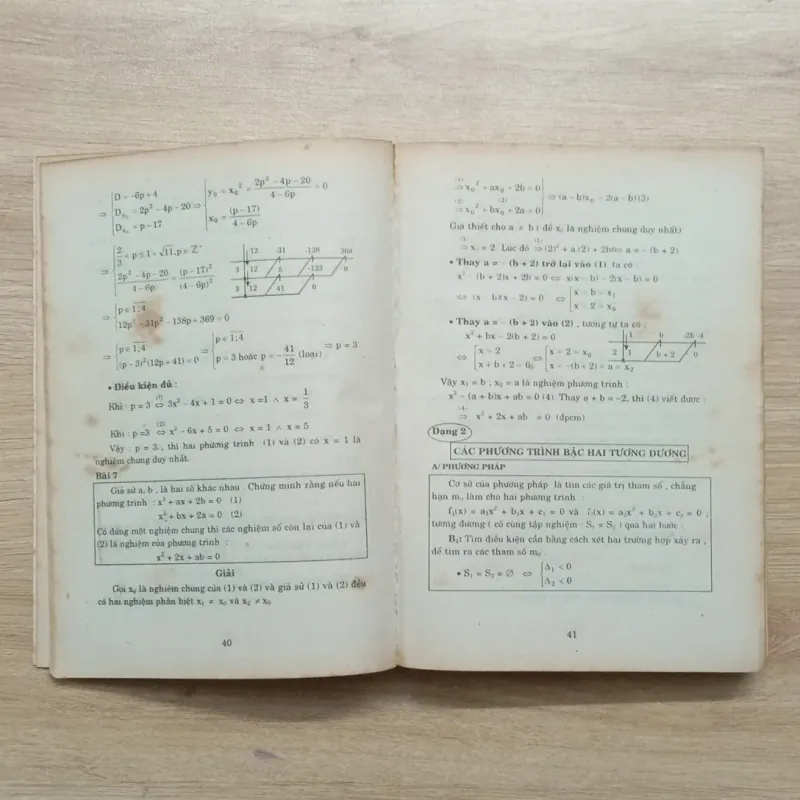 ⇒ { D = -6p + 4
D_y₀ = 2p² - 4p - 20 ⇒ { y₀ = x₀² = (2p² - 4p - 20)/(4 - 6p) > 0
D_x₀ = p - 17
x₀ = (p - 17)/(4 - 6p)
⇒ { 2/3 < p ≤ 1 + √11, p ∈ Z
(2p² - 4p - 20)/(4 - 6p) = (p - 17)²/(4 - 6p)²
12 -31 -138 369
3 12 5 -123 0
3 12 41 0
⇒ { p ∈ 1;4
12p³ - 31p² - 138p + 369 = 0
⇒ { p ∈ 1;4
(p - 3)²(12p + 41) = 0 ⇒ { p ∈ 1;4
p = 3 hoặc p = -41/12 (loại) ⇒ p = 3
• Điều kiện đủ :
Khi : p = 3 (1)⇔ 3x² - 4x + 1 = 0 ⇔ x = 1 ∧ x = 1/3
Khi : p = 3 (2)⇔ x² - 6x + 5 = 0 ⇔ x = 1 ∧ x = 5
Vậy : p = 3, thì hai phương trình (1) và (2) có x = 1 là
nghiệm chung duy nhất.
Bài 7
Giả sử a, b, là hai số khác nhau. Chứng minh rằng nếu hai
phương trình : x² + ax + 2b = 0 (1)
x² + bx + 2a = 0 (2)
Có đúng một nghiệm chung thì các nghiệm số còn lại của (1) và
(2) là nghiệm của phương trình :
x² + 2x + ab = 0
Giải
Gọi x₀ là nghiệm chung của (1) và (2) và giả sử (1) và (2) đều
có hai nghiệm phân biệt x₁ ≠ x₀ và x₂ ≠ x₀
40
(1)⇒ x₀² + ax₀ + 2b = 0
(2)⇒ x₀² + bx₀ + 2a = 0 ⇒ (a - b)x₀ = 2(a - b)(3)
Giả thiết cho a ≠ b ( để x₀ là nghiệm chung duy nhất)
(3)⇒ x₀ = 2. Lúc đó (1)⇒ (2)² + a (2) + 2b = 0 ⇔ a = - (b + 2)
• Thay a = - (b + 2) trở lại vào (1), ta có :
x² - (b + 2)x + 2b = 0 ⇔ x(x - b) - 2(x - b) = 0
⇔ (x - b)(x - 2) = 0 ⇔ [ x = b = x₁
x = 2 = x₀
• Thay a = - (b + 2) vào (2), tương tự ta có :
x² + bx - 2(b + 2) = 0
1 b -2b-4
2 1 b + 2 0
⇔ [ x = 2
x + b + 2 = 0 ⇔ [ x = 2 = x₀
x = -(b + 2) = a = x₂
Vậy x₁ = b ; x₂ = a là nghiệm phương trình :
x² - (a + b)x + ab = 0 (4) Thay a + b = -2, thì (4) viết được :
(4)⇒ x² + 2x + ab = 0 (đpcm)
Dạng 2
CÁC PHƯƠNG TRÌNH BẬC HAI TƯƠNG ĐƯƠNG
A/ PHƯƠNG PHÁP
Cơ sở của phương pháp là tìm các giá trị tham số, chẳng
hạn m, làm cho hai phương trình :
f₁(x) = a₁x² + b₁x + c₁ = 0 và f₂(x) = a₂x² + b₂x + c₂ = 0 ;
tương đương ( có cùng tập nghiệm : S₁ = S₂ ) qua hai bước :
B₁: Tìm điều kiện cần bằng cách xét hai trường hợp xảy ra,
để tìm ra các tham số m₀.
• S₁ = S₂ = ∅ ⇔ { Δ₁ < 0
Δ₂ < 0
41